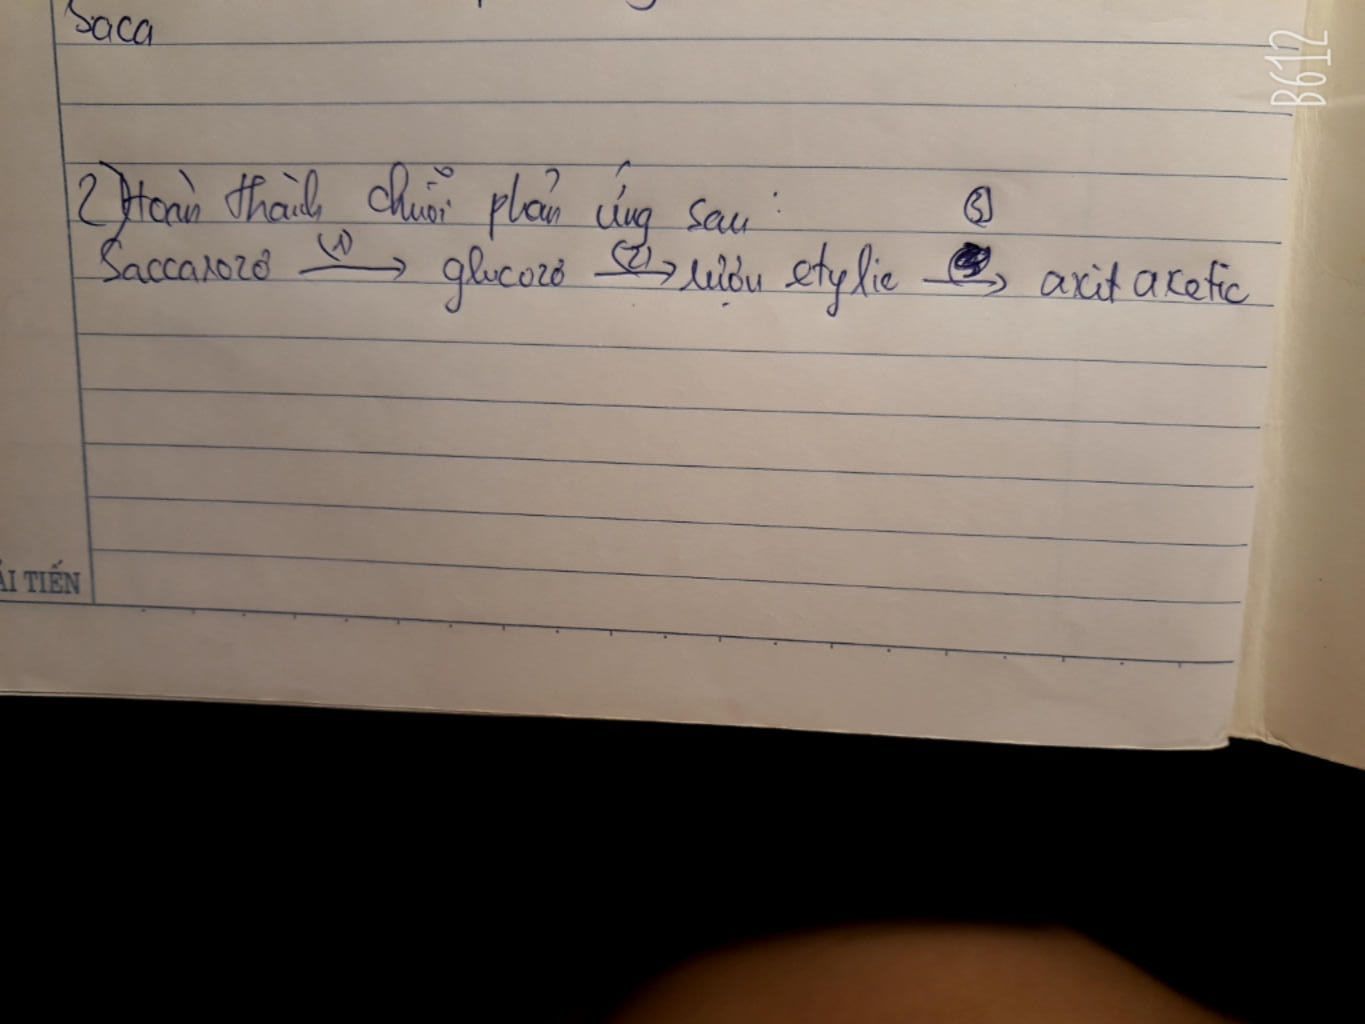 Saca
B612
2) Hoàn thành chuỗi phản ứng sau:
(3)
(1) (2)
Saccarozơ → glucozơ → rượu etylic → axit axetic
ẢI TIẾN